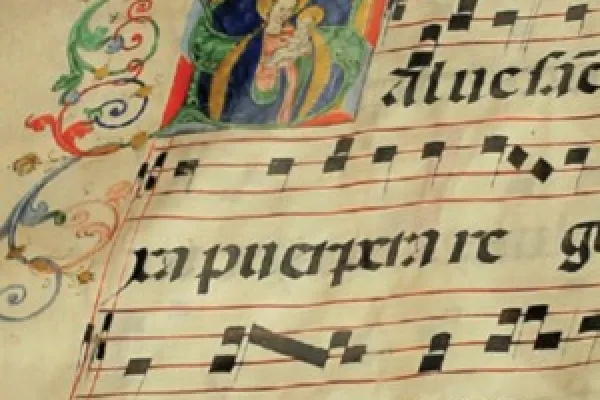 Alue sāc
xa puerpera re g